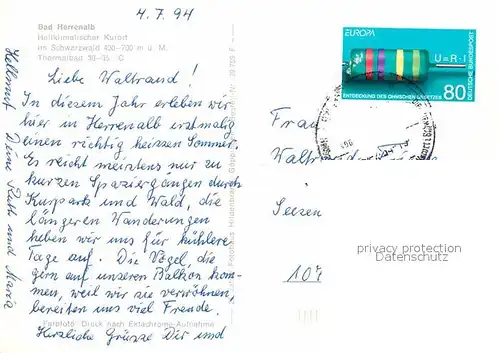 4.7.94
Bad Herrenalb
Heilklimatischer Kurort
im Schwarzwald 400-700 m ü. M.
Thermalbad
Liebe Waltraud!
In diesem Jahr erleben wir
hier in Herrenalb erstmalig
einen richtig heissen Sommer.
Es reicht meistens nur zu
kurzen Spaziergängen durch
Kurpark und Wald, die
längeren Wanderungen
heben wir uns für kühlere
Tage auf. Die Vögel, die
gern auf unseren Balkon kom-
men, weil wir sie verwöhnen,
bereiten uns viel Freude.
Farbfoto: Direkt nach Ektachrome-Aufnahme
Herzliche Grüsse Dir und
Hellmut Deine Ruth und Maria
EUROPA
U=R·I
ENTDECKUNG DES OHMSCHEN GESETZES
80
DEUTSCHE BUNDESPOST
Frau
Seesen
privacy protection
Datenschutz